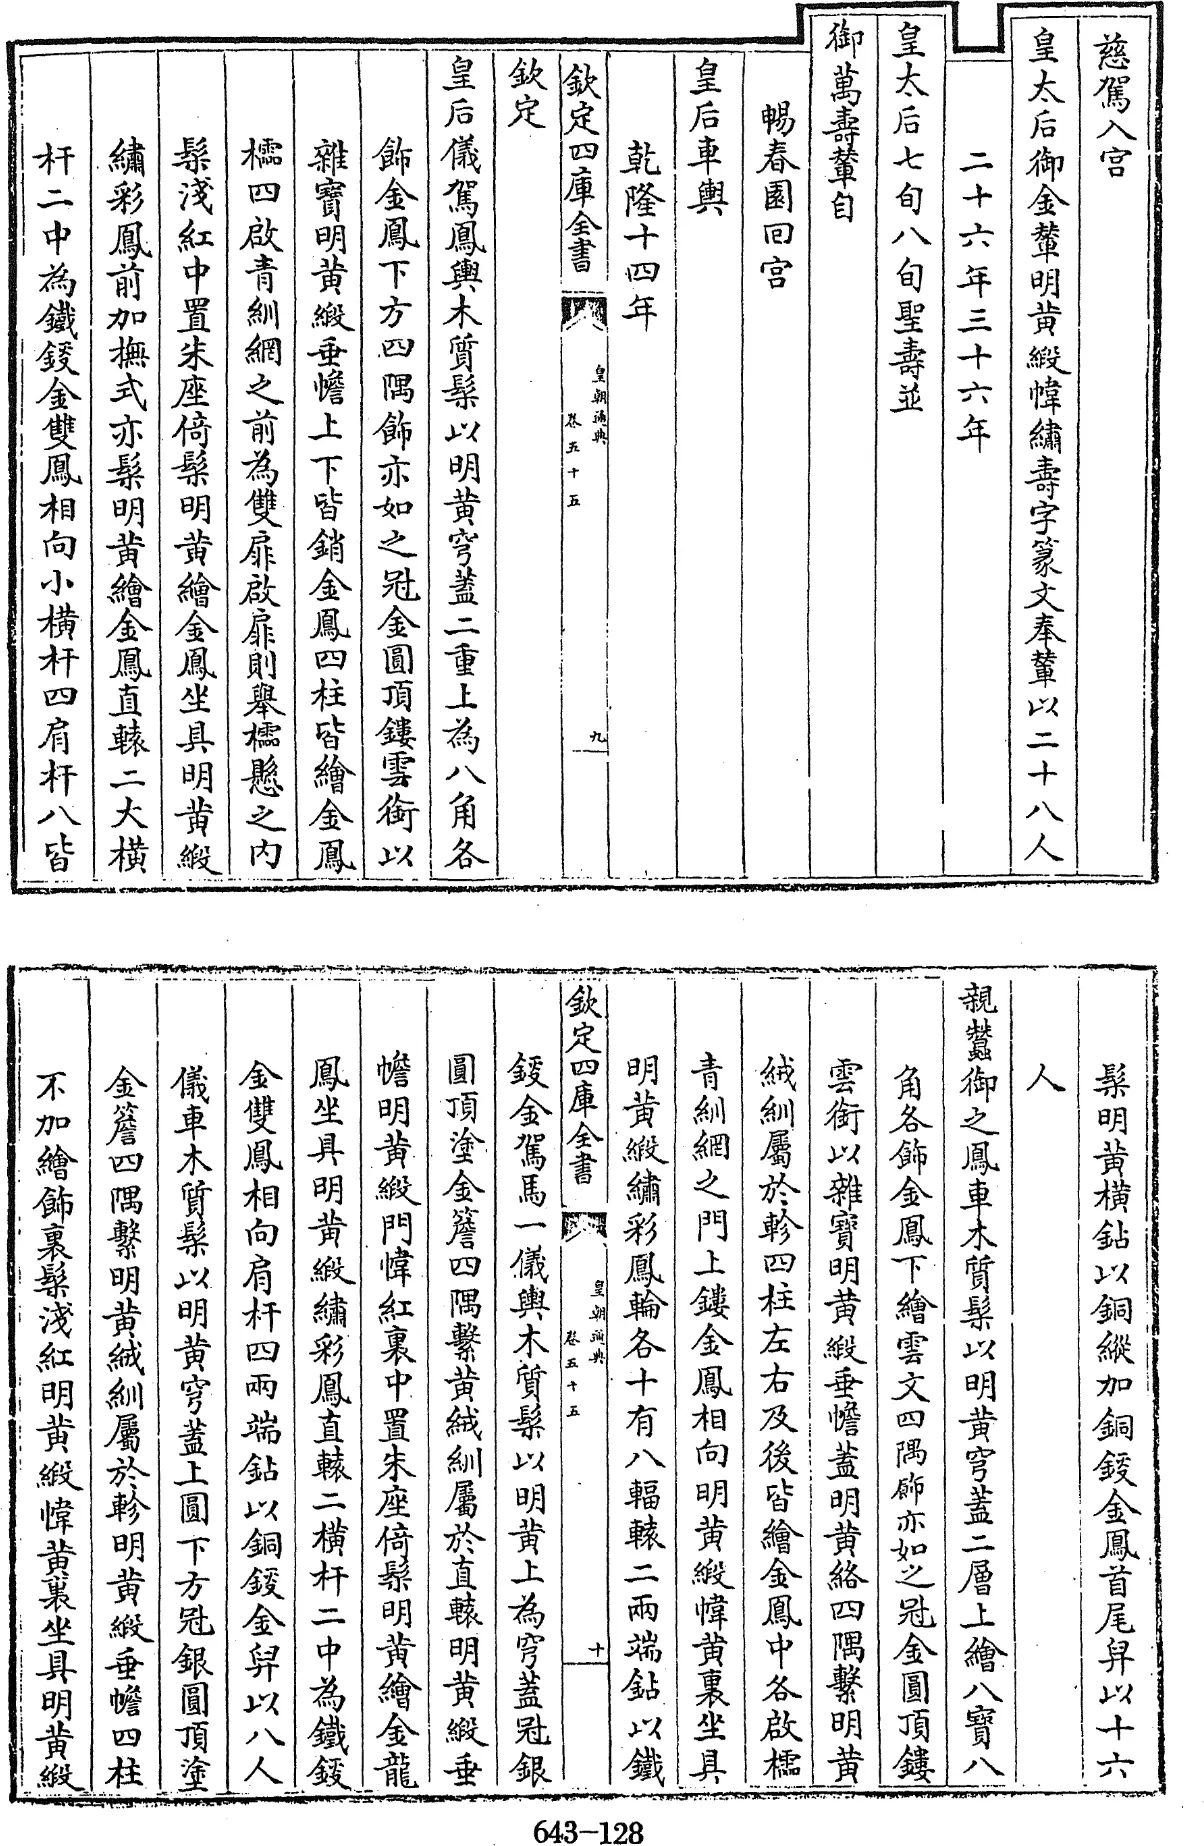 慈駕入宫
皇太后御金輦明黄緞幃繡壽字篆文奉輦以二十八人
二十六年三十六年
皇太后七旬八旬聖壽並
御萬壽輦自
暢春園回宫
皇后車輿
乾隆十四年
欽定四庫全書
皇朝通典
卷五十五
九
欽定
皇后儀駕鳳輿木質髹以明黄穹蓋二重上為八角各
飾金鳳下方四隅飾亦如之冠金圓頂鏤雲銜以
雜寳明黄緞垂幨上下皆銷金鳳四柱皆繪金鳳
檽四啟青紃網之前為雙扉啟扉則舉檽懸之内
髹淺紅中置朱座倚髹明黄繪金鳳坐具明黄緞
繡彩鳳前加撫式亦髹明黄繪金鳳直轅二大横
杆二中為鐵鋄金雙鳳相向小横杆四肩杆八皆
髹明黄横鉆以銅縱加銅鋄金鳳首尾舁以十六
人
親蠶御之鳳車木質髹以明黄穹蓋二層上繪八寳八
角各飾金鳳下繪雲文四隅飾亦如之冠金圓頂鏤
雲銜以雜寳明黄緞垂幨蓋明黄絡四隅繫明黄
絨紃屬於軫四柱左右及後皆繪金鳳中各啟檽
青紃網之門上鏤金鳳相向明黄緞幃黄裏坐具
明黄緞繡彩鳳輪各十有八輻轅二兩端鉆以鐵
欽定四庫全書
皇朝通典
卷五十五
十
鋄金駕馬一儀輿木質髹以明黄上為穹蓋冠銀
圓頂塗金簷四隅繫黄絨紃屬於直轅明黄緞垂
幨明黄緞門幃紅裏中置朱座倚髹明黄繪金龍
鳳坐具明黄緞繡彩鳳直轅二横杆二中為鐵鋄
金雙鳳相向肩杆四兩端鉆以銅鋄金舁以八人
儀車木質髹以明黄穹蓋上圓下方冠銀圓頂塗
金簷四隅繫明黄絨紃屬於軫明黄緞垂幨四柱
不加繪飾裏髹淺紅明黄緞幃黄裏坐具明黄緞
643-128